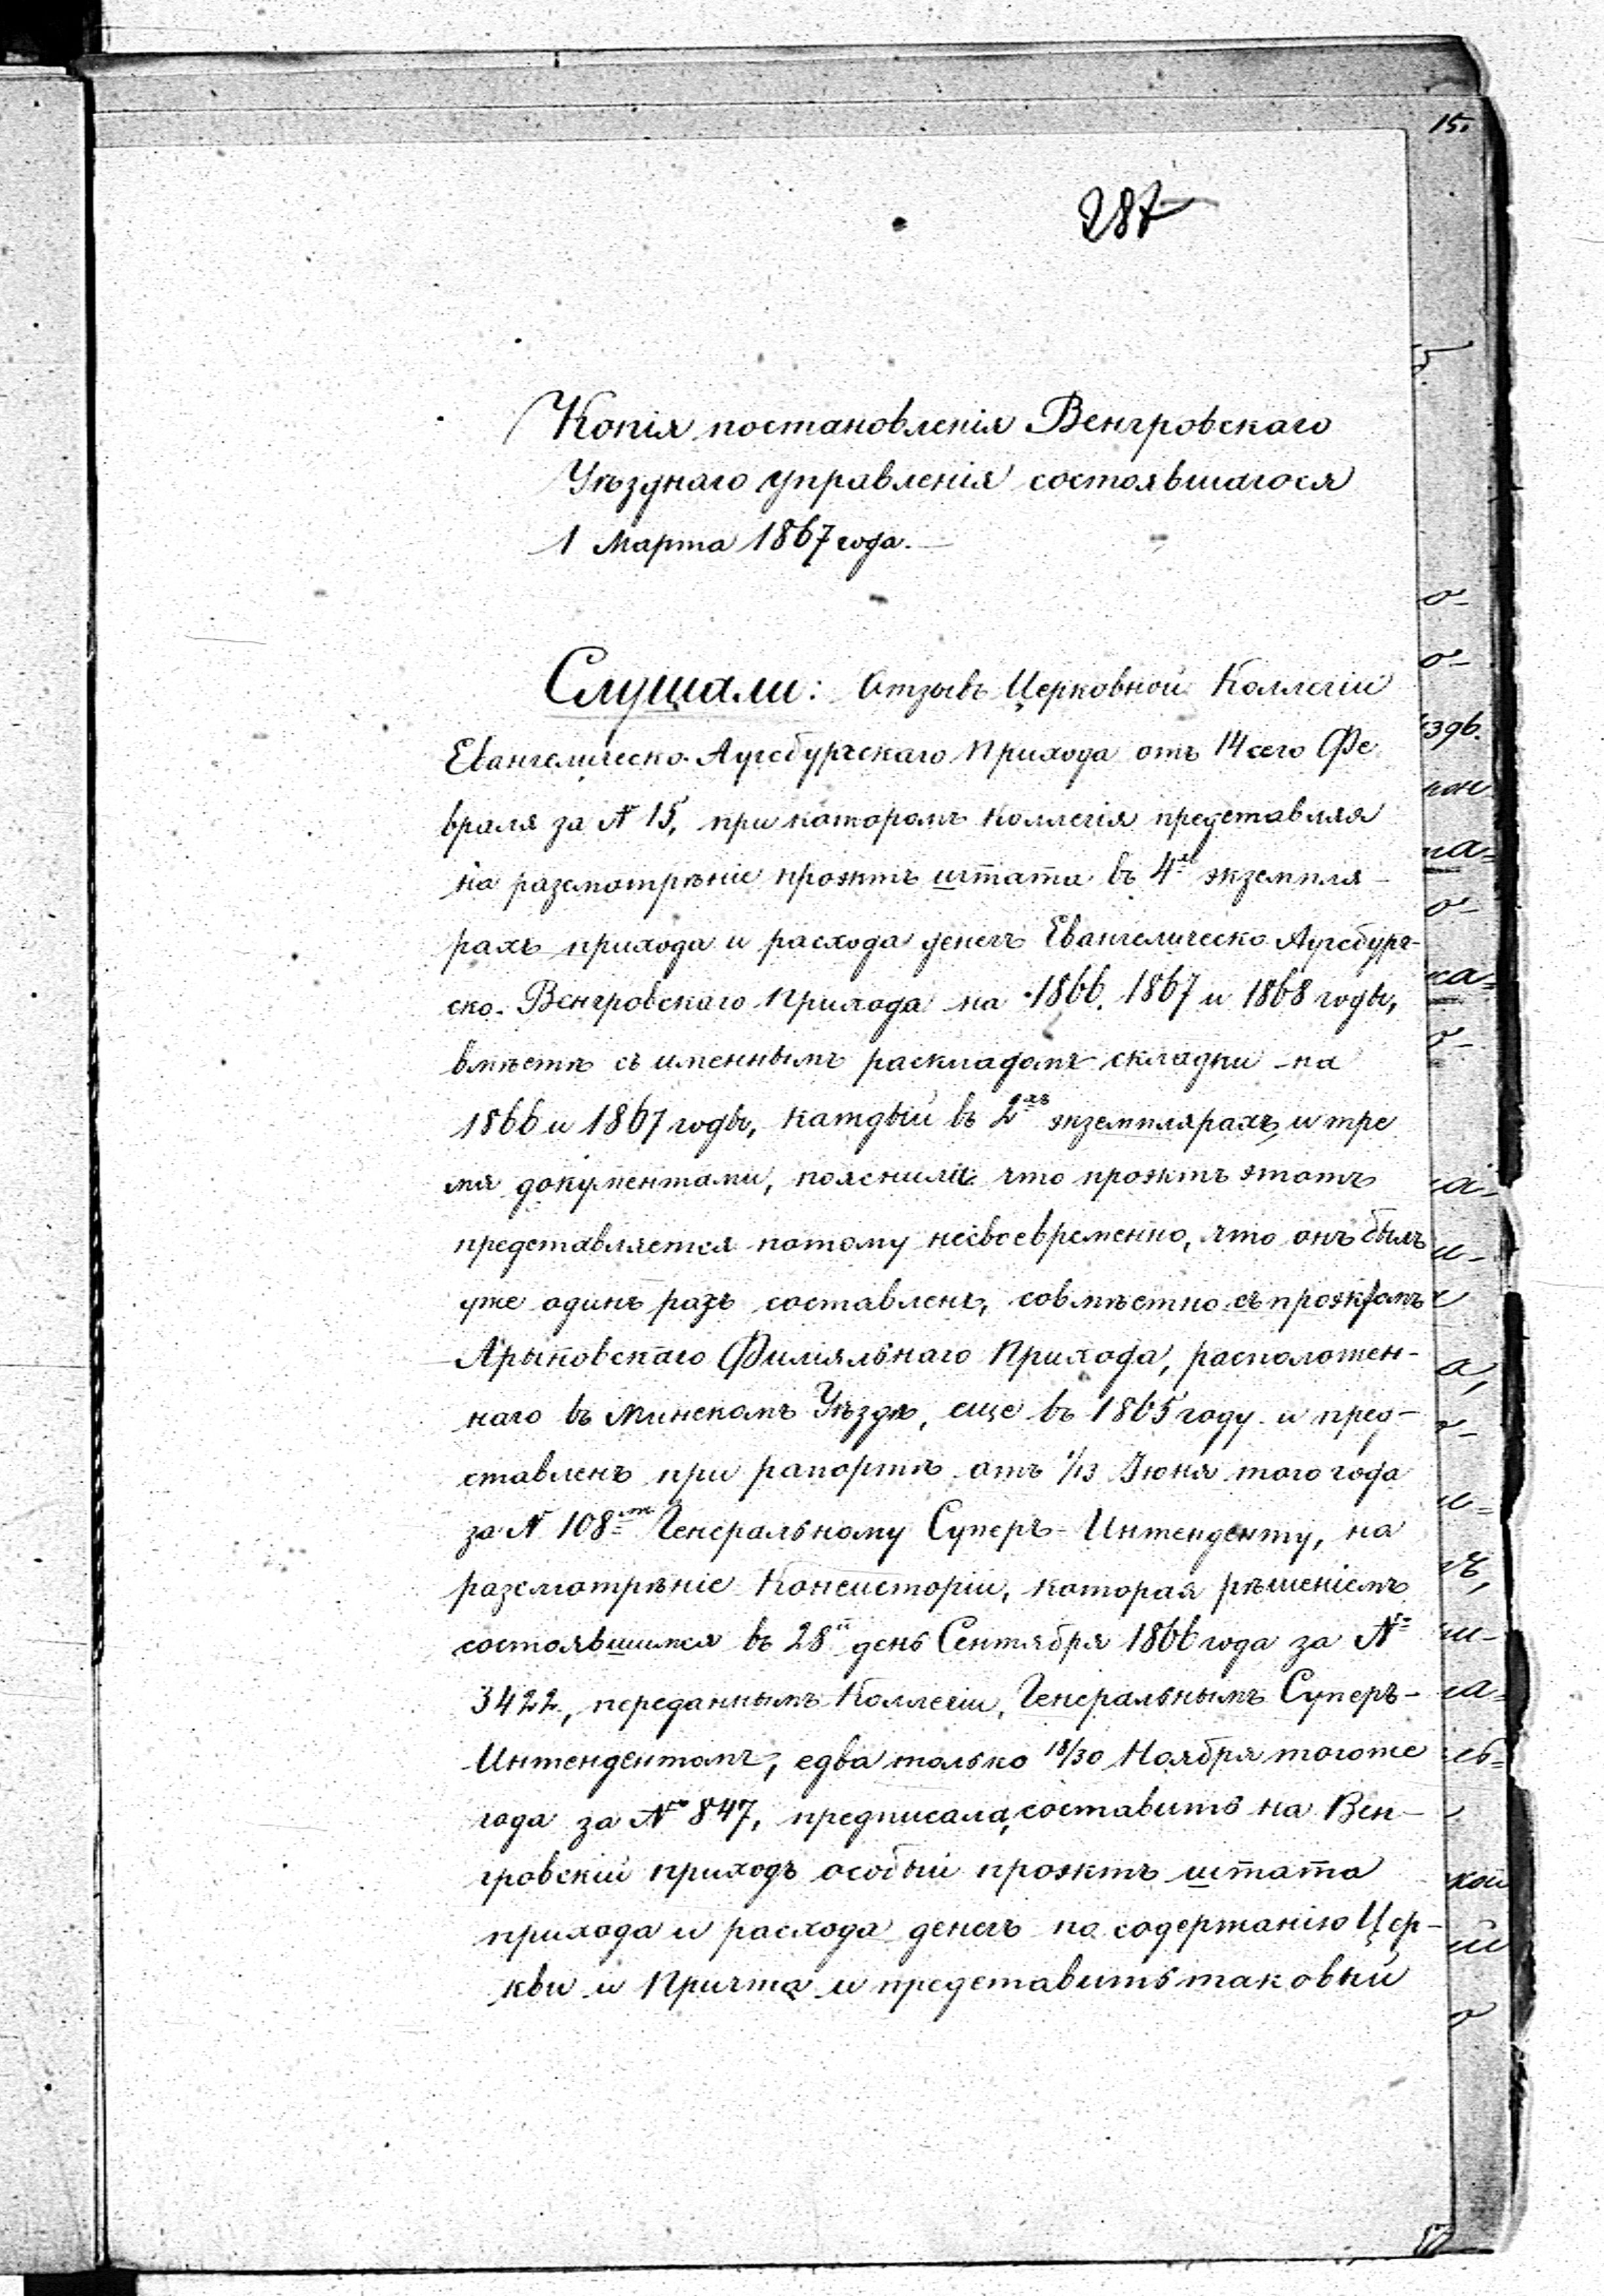 15.
287
Копія постановленія Венгровскаго
Уѣзднаго управленія состоявшагося
1 Марта 1867 года.
Слушали: Отзывъ Церковной Коллегіи
Евангелическо-Аугсбургскаго Прихода отъ 14 сего Фе
враля за № 15, при которомъ Коллегія представляя
на разсмотрѣніе проэктъ штата въ 4хъ экземпля-
рахъ прихода и расхода денегъ Евангелическо Аугсбург-
ско-Венгровскаго Прихода на 1866. 1867 и 1868 годы,
вмѣстѣ съ именнымъ раскладомъ складки на
1866 и 1867 годы, каждый въ 2хъ экземплярахъ, и тре
мя документами, пояснила что проэктъ этотъ
представляется потому несвоевременно, что онъ былъ
уже одинъ разъ составленъ, совмѣстно съ проэктомъ
Арыновскаго Филіяльнаго Прихода, расположен-
наго въ Минскомъ Уѣздѣ, еще въ 1865 году и пред-
ставленъ при рапортѣ отъ 1/13 Іюня того года
за № 108мъ Генеральному Суперъ-Интенденту, на
разсмотрѣніе Консисторіи, которая рѣшеніемъ
состоявшимся въ 28й день Сентября 1866 года за №
3422, переданнымъ Коллегіи, Генеральнымъ Суперъ-
Интендентомъ, едва только 18/30 Ноября тогоже
года за № 847, предписала, составить на Вен-
гровскій приходъ особый проэктъ штата
прихода и расхода денегъ по содержанію Цер-
кви и Причта и представить таковый